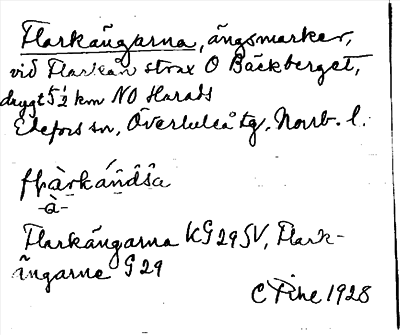 Flarkängarna, ängsmarker,
vid Flarkån strax O Bäckberget,
drygt 5½ km NO Harads
Edefors sn, Överluleå tg, Norrb. l.
-à-
Flarkängarna KG 29 SV, Flark-
ängarne G 29
1928